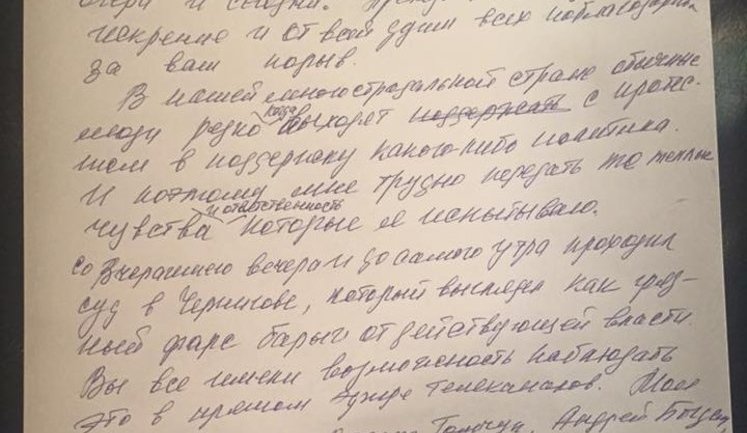 искренне и от всей души всех поблагодарить
за ваш порыв.
В нашей многострадальной стране обычные
люди редко когда выходят поддержать с протес-
том в поддержку какого-либо политика.
И поэтому мне трудно передать те теплые
чувства и ответственность которые я испытываю.
Со вчерашнего вечера и до самого утра проходил
суд в Чернигове, который выглядел как гряз-
ный фарс барыг от действующей власти
Вы все имели возможность наблюдать
это в прямом эфире телеканалов. Мои
Андрей